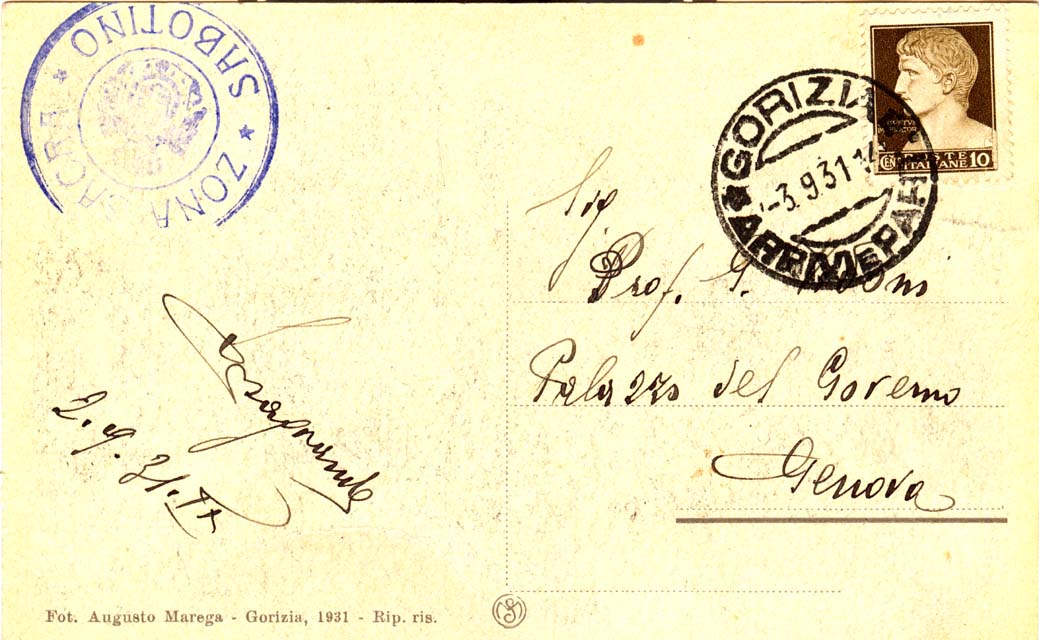 ZONA SACRA * SABOTINO *
GORIZIA
-3.9.31
ARRIVI E PAR
POSTE
ITALIANE 10
CEN
Sig
Prof. G.
Palazzo del Governo
Genova
2.9.31.IX
Fot. Augusto Marega - Gorizia, 1931 - Rip. ris.